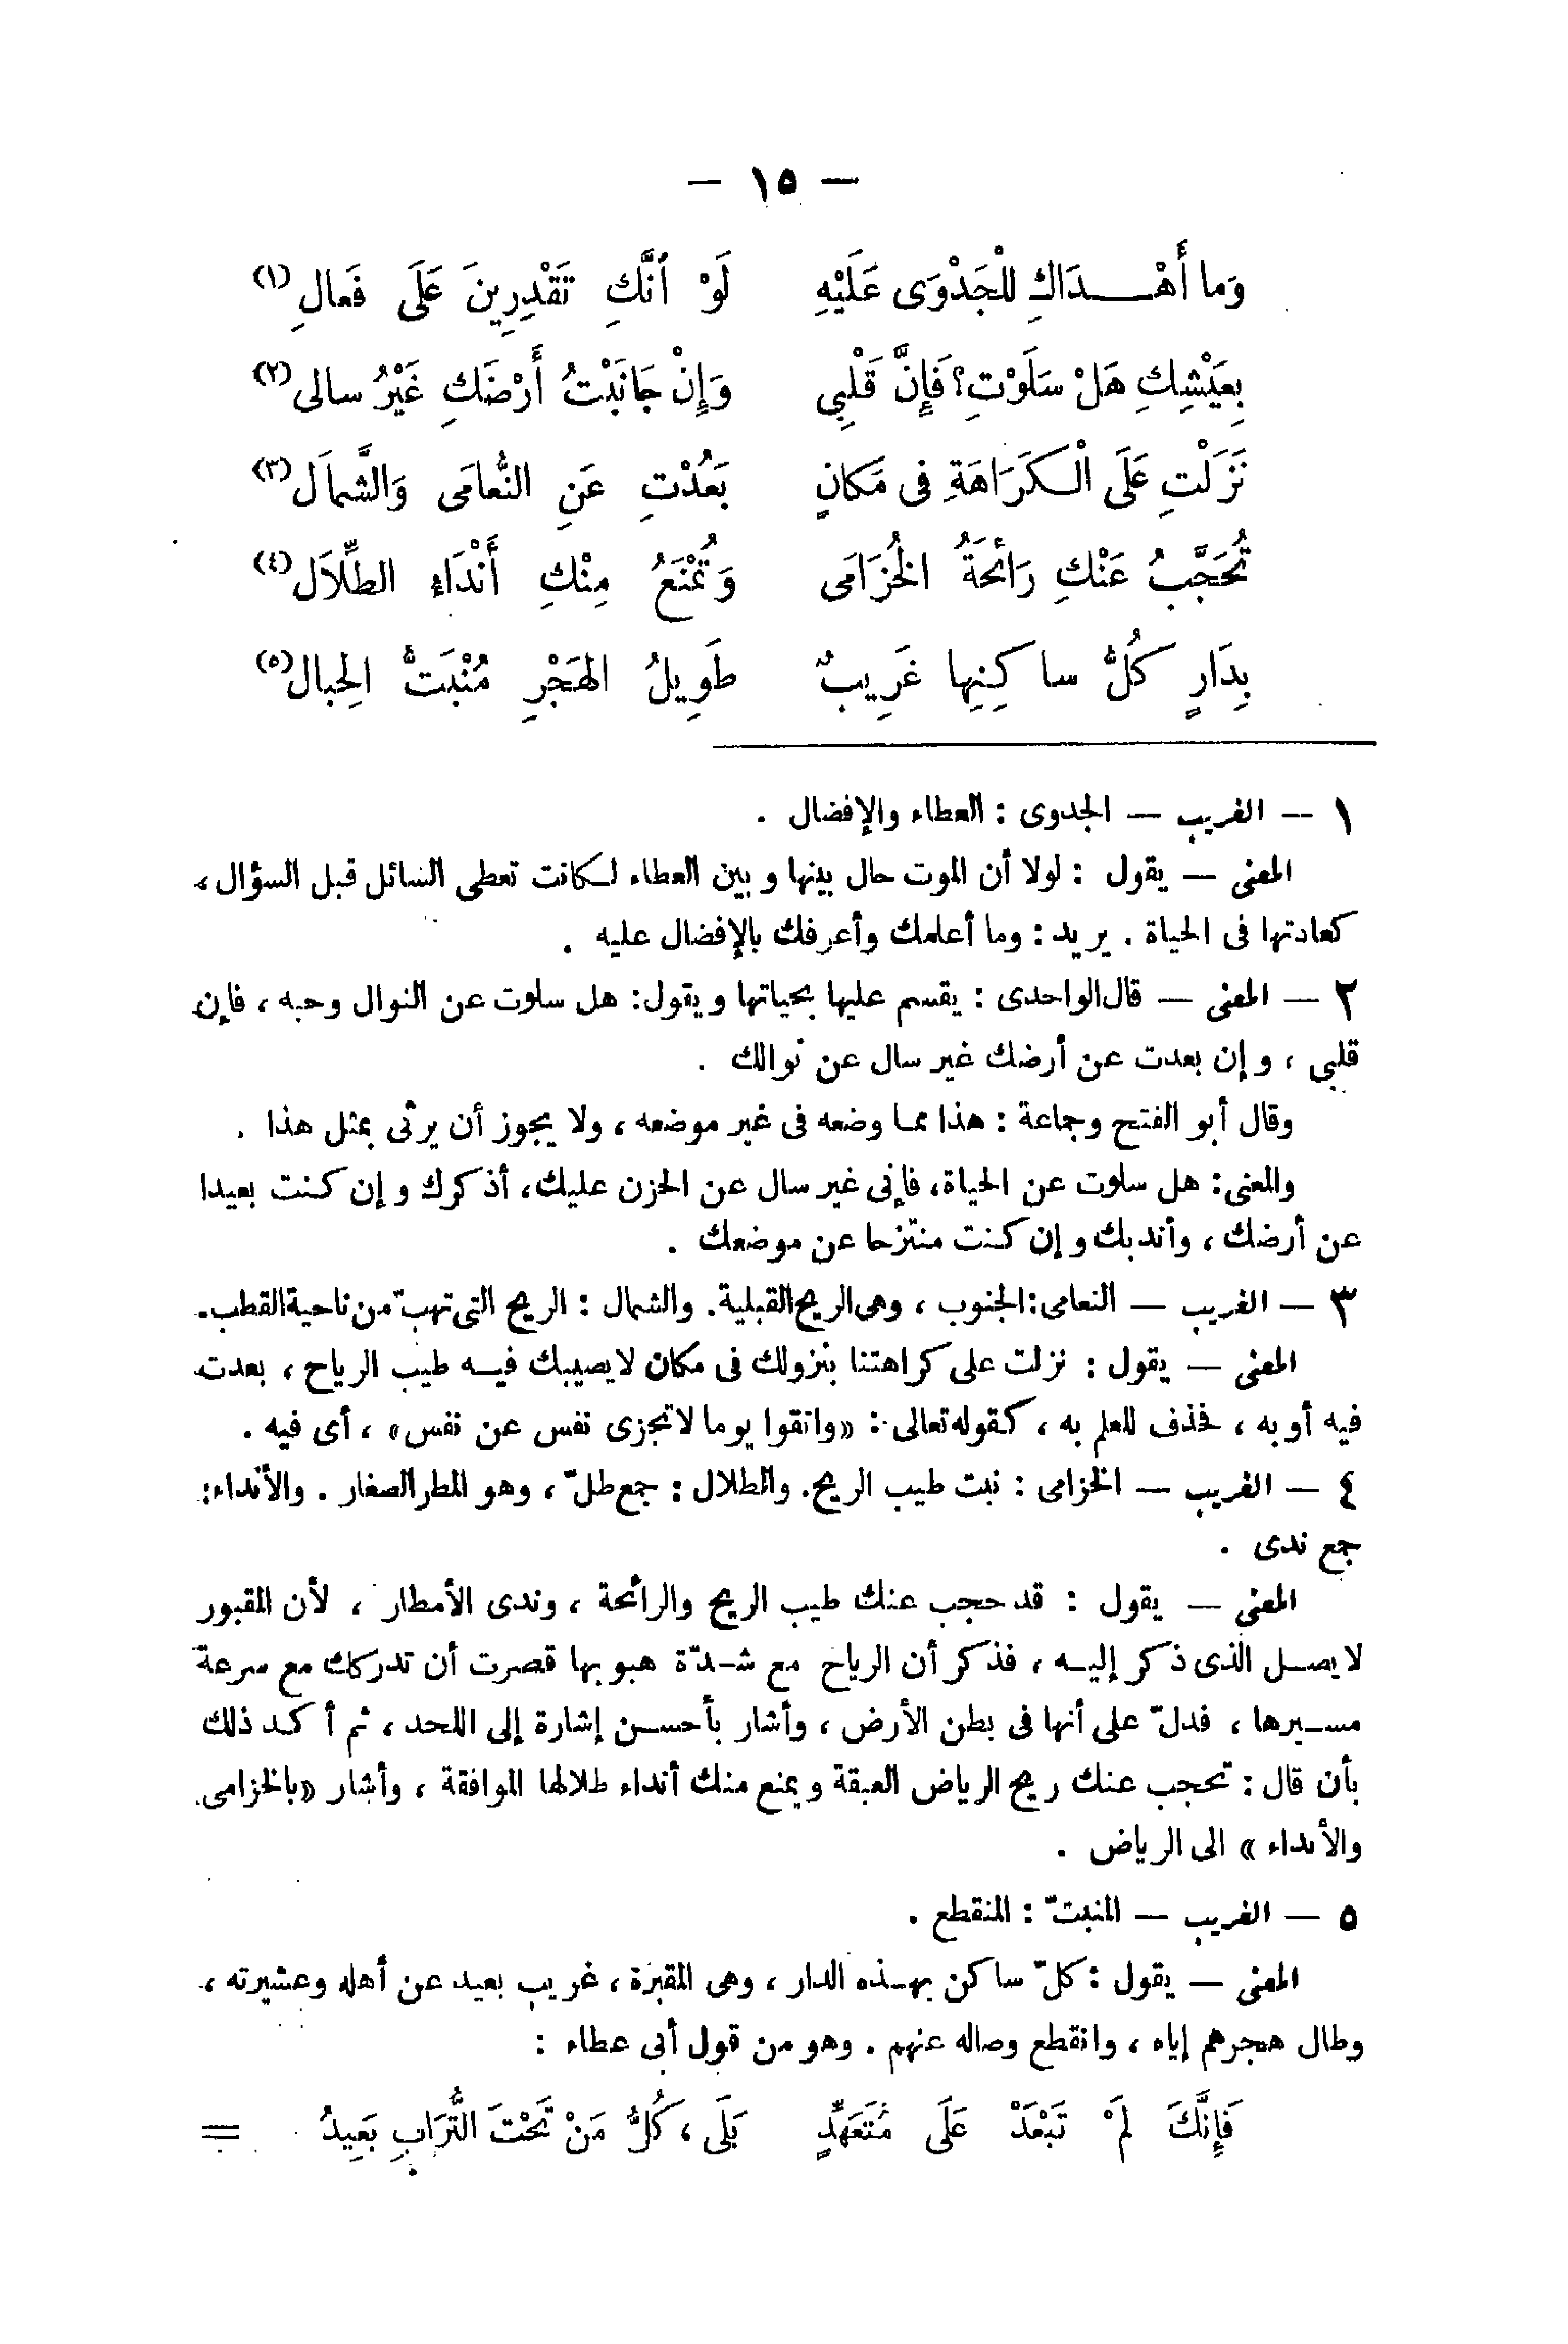 — ١٥ —
وَما أَهْـــدَاكِ لِلْجَدْوَى عَلَيْهِ لَوْ أنَّكِ تَقْدِرِينَ عَلَى فَعالِ (١)
بِعَيْشِكِ هَلْ سَلَوْتِ؟ فَإِنَّ قَلْبِى وَإِنْ جَانَبْتُ أَرْضَكِ غَيْرُ سالى (٢)
نَزَلْتِ عَلَى الْـكَرَاهَةِ فى مَكانٍ بَعُدْتِ عَنِ النُّعامَى وَالشَّمالَ (٣)
تُحَجَّبُ عَنْكِ رَائحَةُ الخُزَامَى وَتُمْنَعُ مِنْكِ أَنْدَاءُ الطِّلَالَ (٤)
بِدَارٍ كُلُّ ساكِنِها غَرِيبٌ طَوِيلُ الهَجْرِ مُنْبَتُّ الِحبال (٥)
١ — الغريب — الجدوى : العطاء والإفضال .
المعنى — يقول : لولا أن الموت حال بينها وبين العطاء لـكانت تعطى السائل قبل السؤال ،
كعادتها فى الحياة . يريد : وما أعلمك وأعرفك بالإفضال عليه .
٢ — المعنى — قال الواحدى : يقسم عليها بحياتها ويقول: هل سلوت عن النوال وحبه ، فإن
قلبى ، وإن بعدت عن أرضك غير سال عن نوالك .
وقال أبو الفتح وجماعة : هذا مما وضعه فى غير موضعه ، ولا يجوز أن يرثى بمثل هذا .
والمعنى: هل سلوت عن الحياة، فإنى غير سال عن الحزن عليك، أذكرك وإن كنت بعيدا
عن أرضك ، وأندبك وإن كنت منتزحا عن موضعك .
٣ — الغريب — النعامى : الجنوب ، وهى الريح القبلية. والشمال : الريح التى تهبّ من ناحية القطب.
المعنى — يقول : نزلت على كراهتنا بنزولك فى مكان لا يصيبك فيـه طيب الرياح ، بعدت
فيه أو به ، فحذف للعلم به ، كقوله تعالى : «واتقوا يوما لا تجزى نفس عن نفس» ، أى فيه .
٤ — الغريب — الخزامى : نبت طيب الريح. والطلال : جمع طلّ ، وهو المطر الصغار . والأنداء:
جمع ندى .
المعنى — يقول : قد حجب عنك طيب الريح والرائحة ، وندى الأمطار ، لأن المقبور
لا يصـل الذى ذكر إليـه ، فذكر أن الرياح مع شـدّة هبوبها قصرت أن تدركك مع سرعة
مسـيرها ، فدلّ على أنها فى بطن الأرض ، وأشار بأحسـن إشارة إلى اللحد ، ثم أكـد ذلك
بأن قال : تحجب عنك ريح الرياض العبقة ويمنع منك أنداء طلالها الموافقة ، وأشار «بالخزامى
والأنداء» الى الرياض .
٥ — الغريب — المنبتّ : المنقطع .
المعنى — يقول : كلّ ساكن بهـذه الدار ، وهى المقبرة ، غريب بعيد عن أهله وعشيرته ،
وطال هجرهم إياه ، وانقطع وصاله عنهم . وهو من قول أبى عطاء :
فَإِنَّكَ لَمْ تَبْعَدْ عَلَى مُتَعَهِّدٍ بَلَى ، كُلُّ مَنْ تَحْتَ التُّرَابِ بَعِيدُ =